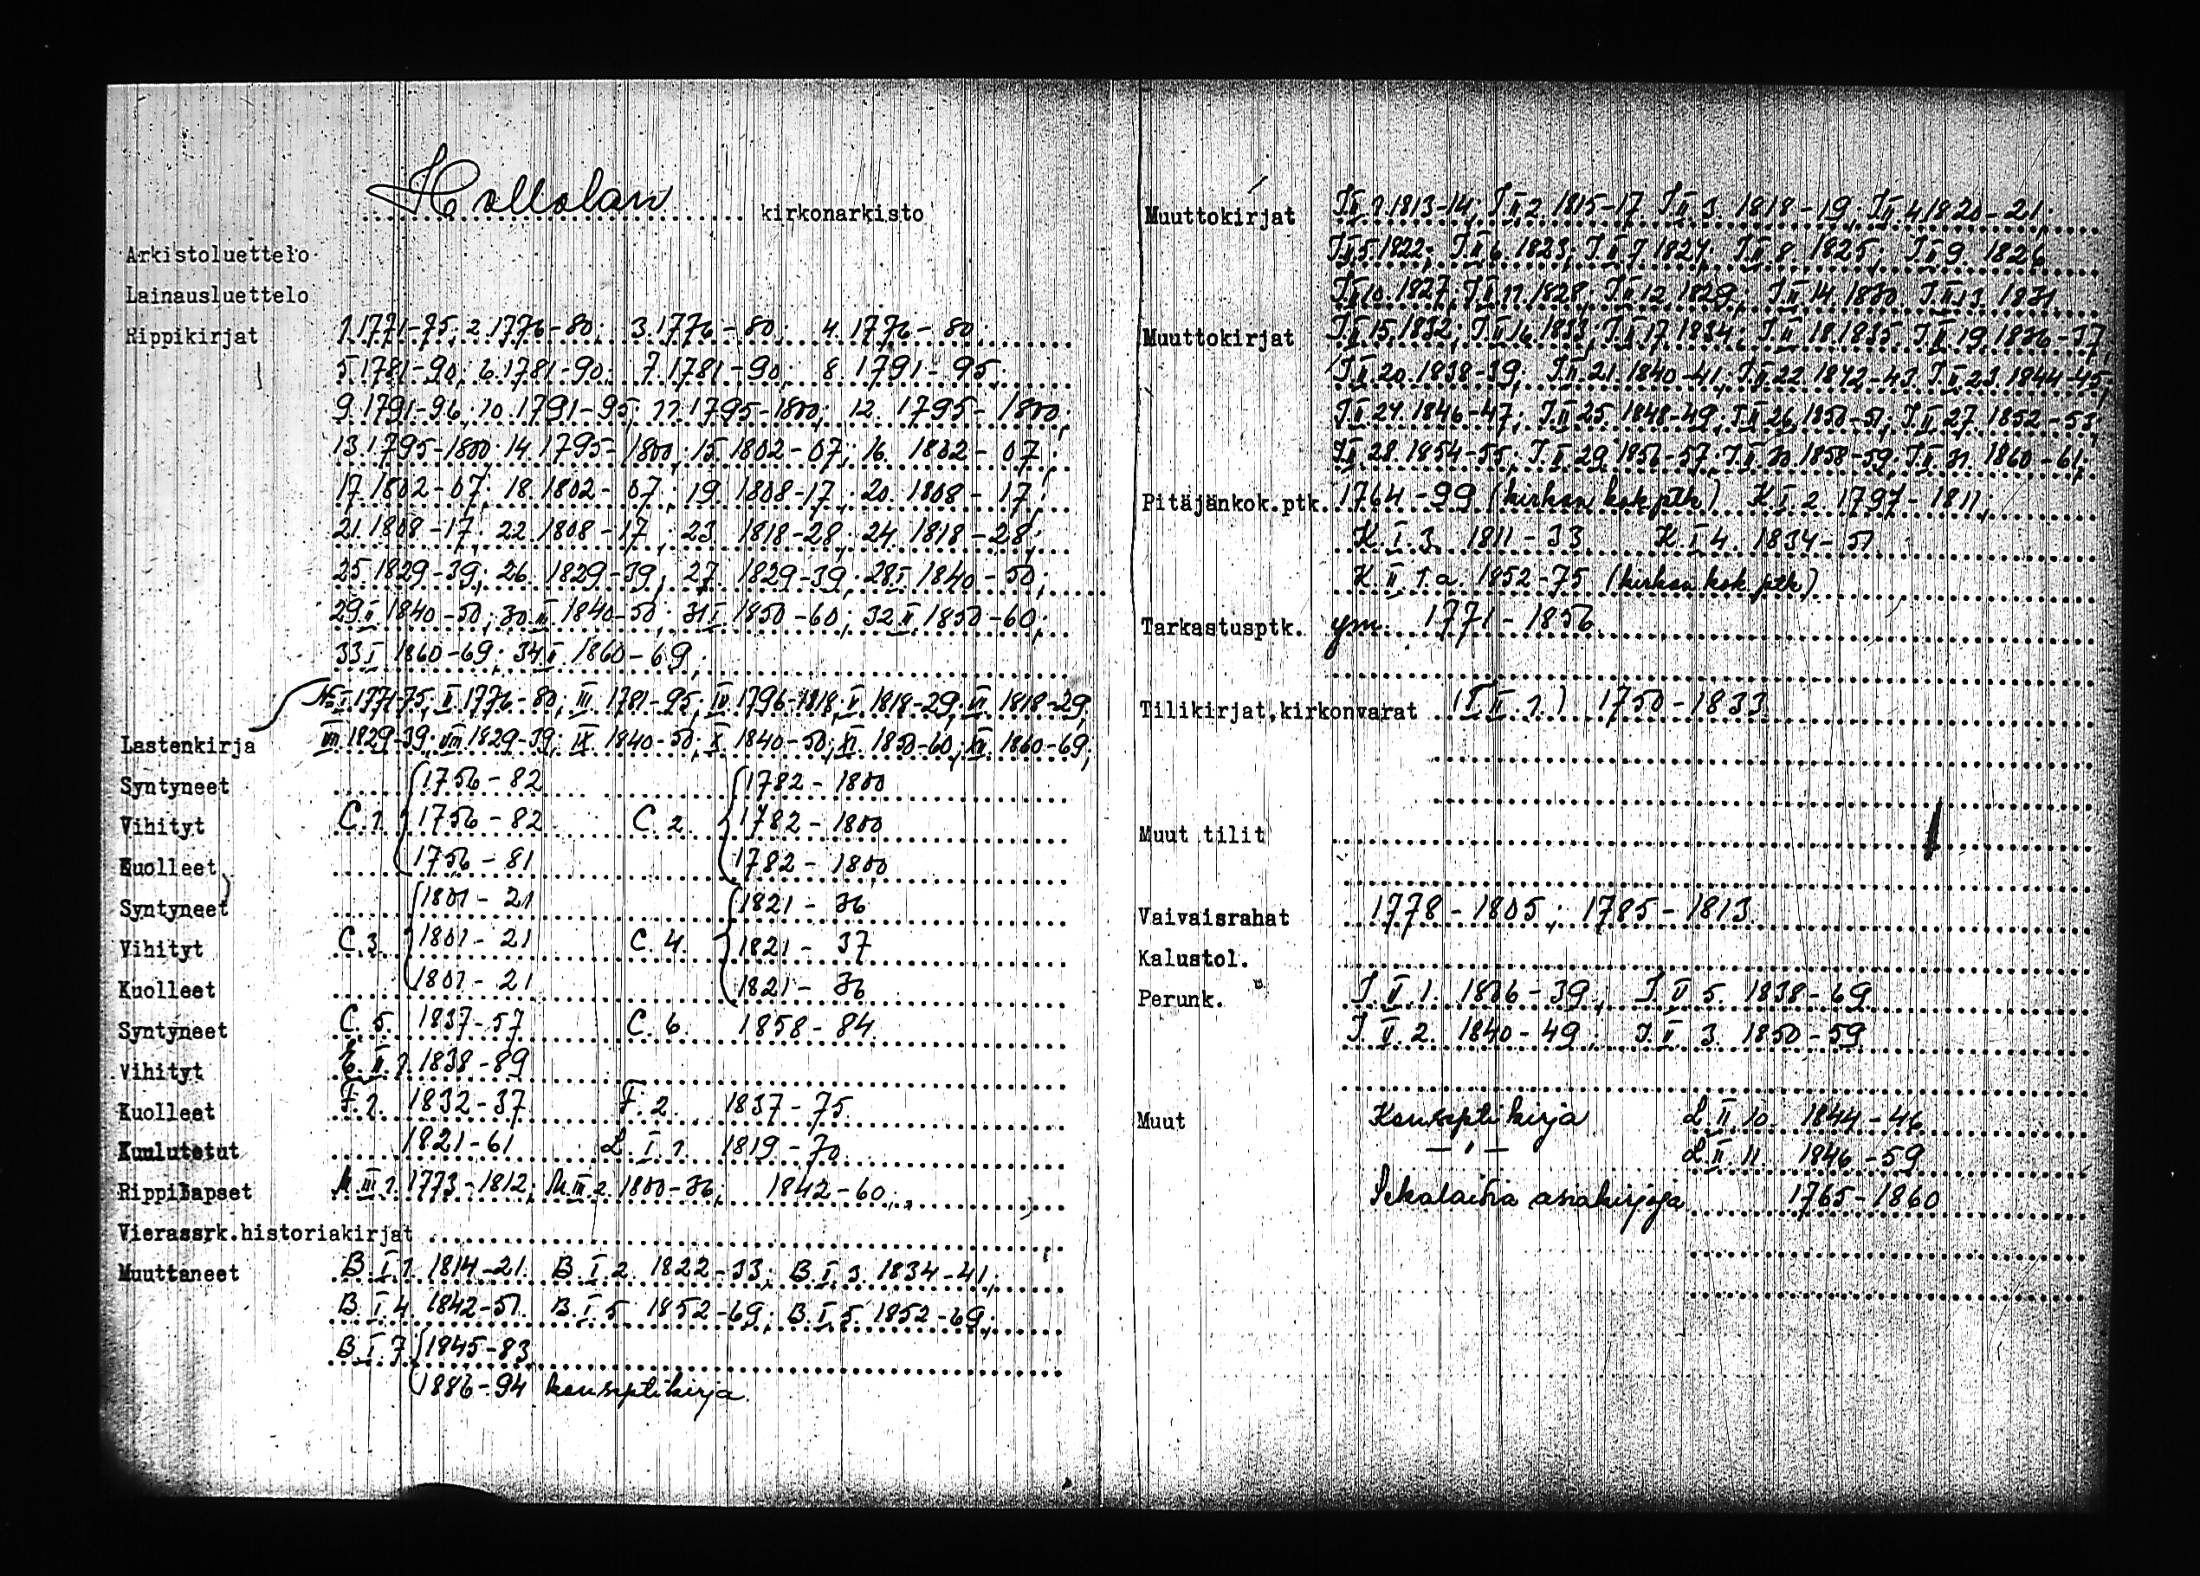 Hollolan kirkonarkisto
Arkistoluettelo
Lainausluettelo
Rippikirjat 1. 1771-75; 2. 1776-80; 3. 1776-80; 4. 1776-80;
5. 1781-90; 6. 1781-90; 7. 1781-90; 8. 1791-95;
9. 1791-96; 10. 1791-95; 11. 1795-1800; 12. 1795-1800;
13. 1795-1800; 14. 1795-1800; 15. 1802-07; 16. 1802-07;
17. 1802-07; 18. 1802-07; 19. 1808-17; 20. 1808-17;
21. 1808-17; 22. 1808-17; 23. 1818-28; 24. 1818-28;
25. 1829-39; 26. 1829-39; 27. 1829-39; 28 I 1840-50;
29 II 1840-50; 30 III 1840-50; 31 I 1850-60; 32 II 1850-60;
33 I 1860-69; 34 II 1860-69;
No I 1771-75, II 1776-80; III 1781-95; IV 1796-1818, V 1818-29, VI 1818-29,
Lastenkirja VII 1829-39, VIII 1829-39; IX 1840-50; X 1840-50; XI 1850-60; XII 1860-69;
Syntyneet 1756-82 1782-1800
Vihityt C. 1. 1756-82 C. 2. 1782-1800
Kuolleet 1756-81 1782-1800
Syntyneet 1801-21 1821-36
Vihityt C. 3. 1801-21 C. 4. 1821-37
Kuolleet 1801-21 1821-36
Syntyneet C. 5. 1837-57 C. 6. 1858-84.
Vihityt E. II. 1. 1838-89
Kuolleet F. 1. 1832-37 F. 2. 1837-75.
Kuulutetut 1821-61 L. I. 1. 1819-70.
Rippilapset M III 1. 1773-1812; M III 2. 1800-36; 1842-60.
Vierassrk.historiakirjat
Muuttaneet B. I. 1. 1814-21. B. I. 2. 1822-33; B. I. 3. 1834-41;
B. I. 4. 1842-51. B. I. 5. 1852-69; B. I. 5. 1852-69;
B. I. 7. 1845-83
1886-94 konseptikirja.
Muuttokirjat I II 1. 1813-14; I II 2. 1815-17. I II 3. 1818-19; I II 4. 1820-21;
I II 5. 1822; I II 6. 1823; I II 7. 1824; I II 8. 1825; I II 9. 1826
I II 10. 1827; I II 11. 1828; I II 12. 1829; I II 14. 1830; I II 13. 1831
Muuttokirjat I II 15. 1832; I II 16. 1833; I II 17. 1834; I II 18. 1835; I II 19. 1836-37;
I II 20. 1838-39; I II 21. 1840-41; I II 22. 1842-43. I II 23. 1844-45;
I II 24. 1846-47; I II 25. 1848-49; I II 26. 1850-51; I II 27. 1852-53;
I II 28. 1854-55; I II 29. 1856-57; I II 30. 1858-59; I II 31. 1860-61;
Pitäjänkok.ptk. 1764-99 (kirkon kok ptk) K I 2. 1797-1811;
K. I. 3. 1811-33. K. I 4. 1834-51
K. II 1.a. 1852-75 (kirkon kok ptk)
Tarkastusptk. ym. 1771-1856.
Tilikirjat,kirkonvarat (T II. 1.) 1750-1833
Muut tilit
Vaivaisrahat 1778-1805; 1785-1813.
Kalustol.
Perunk. I. V. 1. 1836-39; I. V 5. 1838-69
I. V. 2. 1840-49; I. V. 3. 1850-59
Muut Konseptikirja L II 10. 1844-46
— " — L II 11. 1846-59
Sekalaisia asiakirjoja 1765-1860